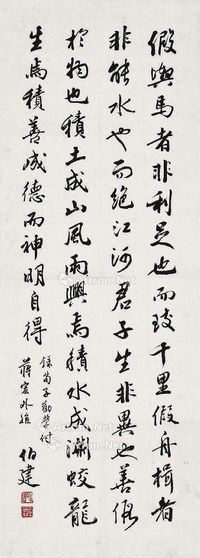 假與馬者非利足也而致千里假舟楫者
非能水也而絕江河君子生非異也善假
於物也積土成山風雨興焉積水成淵蛟龍
生焉積善成德而神明自得
錄荀子勸學付
蔣宏外孫
伯建